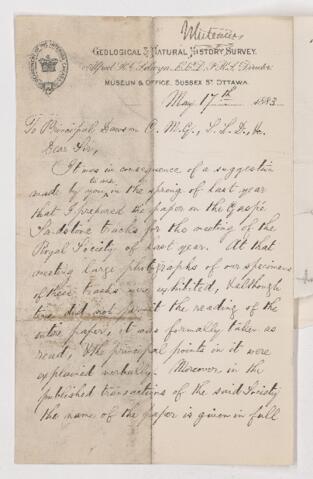 Whiteaves
GEOLOGICAL & NATURAL HISTORY SURVEY.
Alfred R. C. Selwyn, L.L.D., F.R.S., Director.
MUSEUM & OFFICE, SUSSEX ST. OTTAWA.
May 17th 1883
To Principal Dawson C. M. G., L. L. D., &c.
Dear Sir,
It was in consequence of a suggestion
to me
made by you, in the spring of last year
that I prepared the paper on the Gaspé
Sandstone tracks for the meeting of the
Royal Society of last year. At that
meeting large photographs of our specimens
of these tracks were exhibited, & although
time did not permit the reading of the
entire paper, it was formally taken as
read, & the principal points in it were
explained verbally. Moreover in the
published transactions of the said Society
the name of the paper is given in full